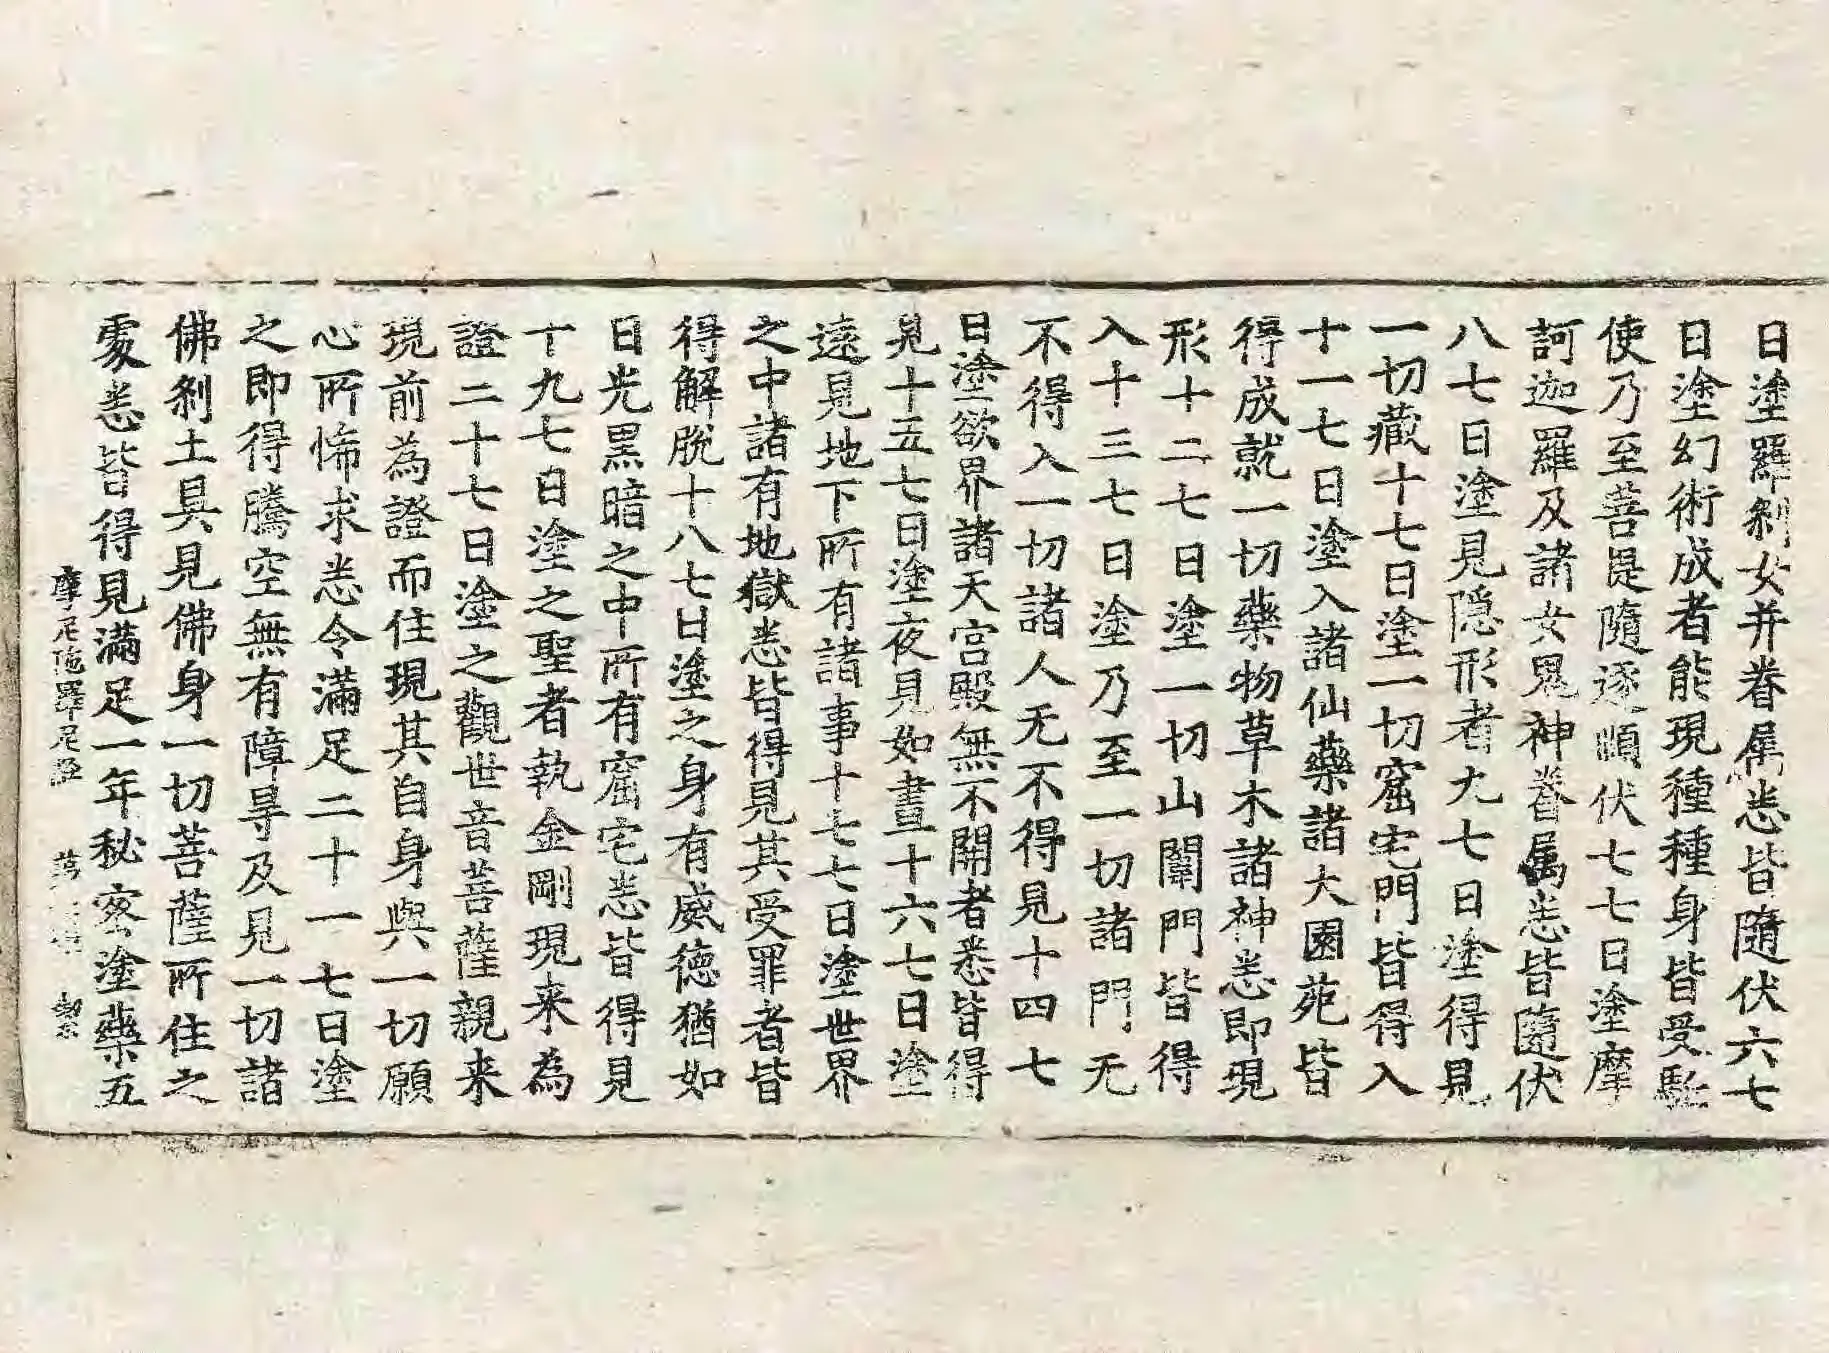 日塗羅剎女并眷属悉皆隨伏六七
日塗幻術成者能現種種身皆受駈
使乃至菩提隨逐順伏七七日塗摩
訶迦羅及諸女鬼神眷属悉皆隨伏
八七日塗見隠形者九七日塗得見
一切藏十七日塗一切窟宅門皆得入
十一七日塗入諸仙藥諸大園苑皆
得成就一切藥物草木諸神悉即現
形十二七日塗一切山闇門皆得
入十三七日塗乃至一切諸門无
不得入一切諸人无不得見十四七
日塗欲界諸天宮殿無不開者悉皆得
見十五七日塗夜見如晝十六七日塗
遠見地下所有諸事十七七日塗世界
之中諸有地獄悉皆得見其受罪者皆
得解脫十八七日塗之身有威德猶如
日光黒暗之中所有窟宅悉皆得見
十九七日塗之聖者執金剛現来為
證二十七日塗之觀世音菩薩親来
現前為證而住現其自身與一切願
心所悕求悉令滿足二十一七日塗
之即得騰空無有障㝵及見一切諸
佛剎土具見佛身一切菩薩所住之
處悉皆得見滿足一年秘密塗藥五
摩尼陁羅尼經